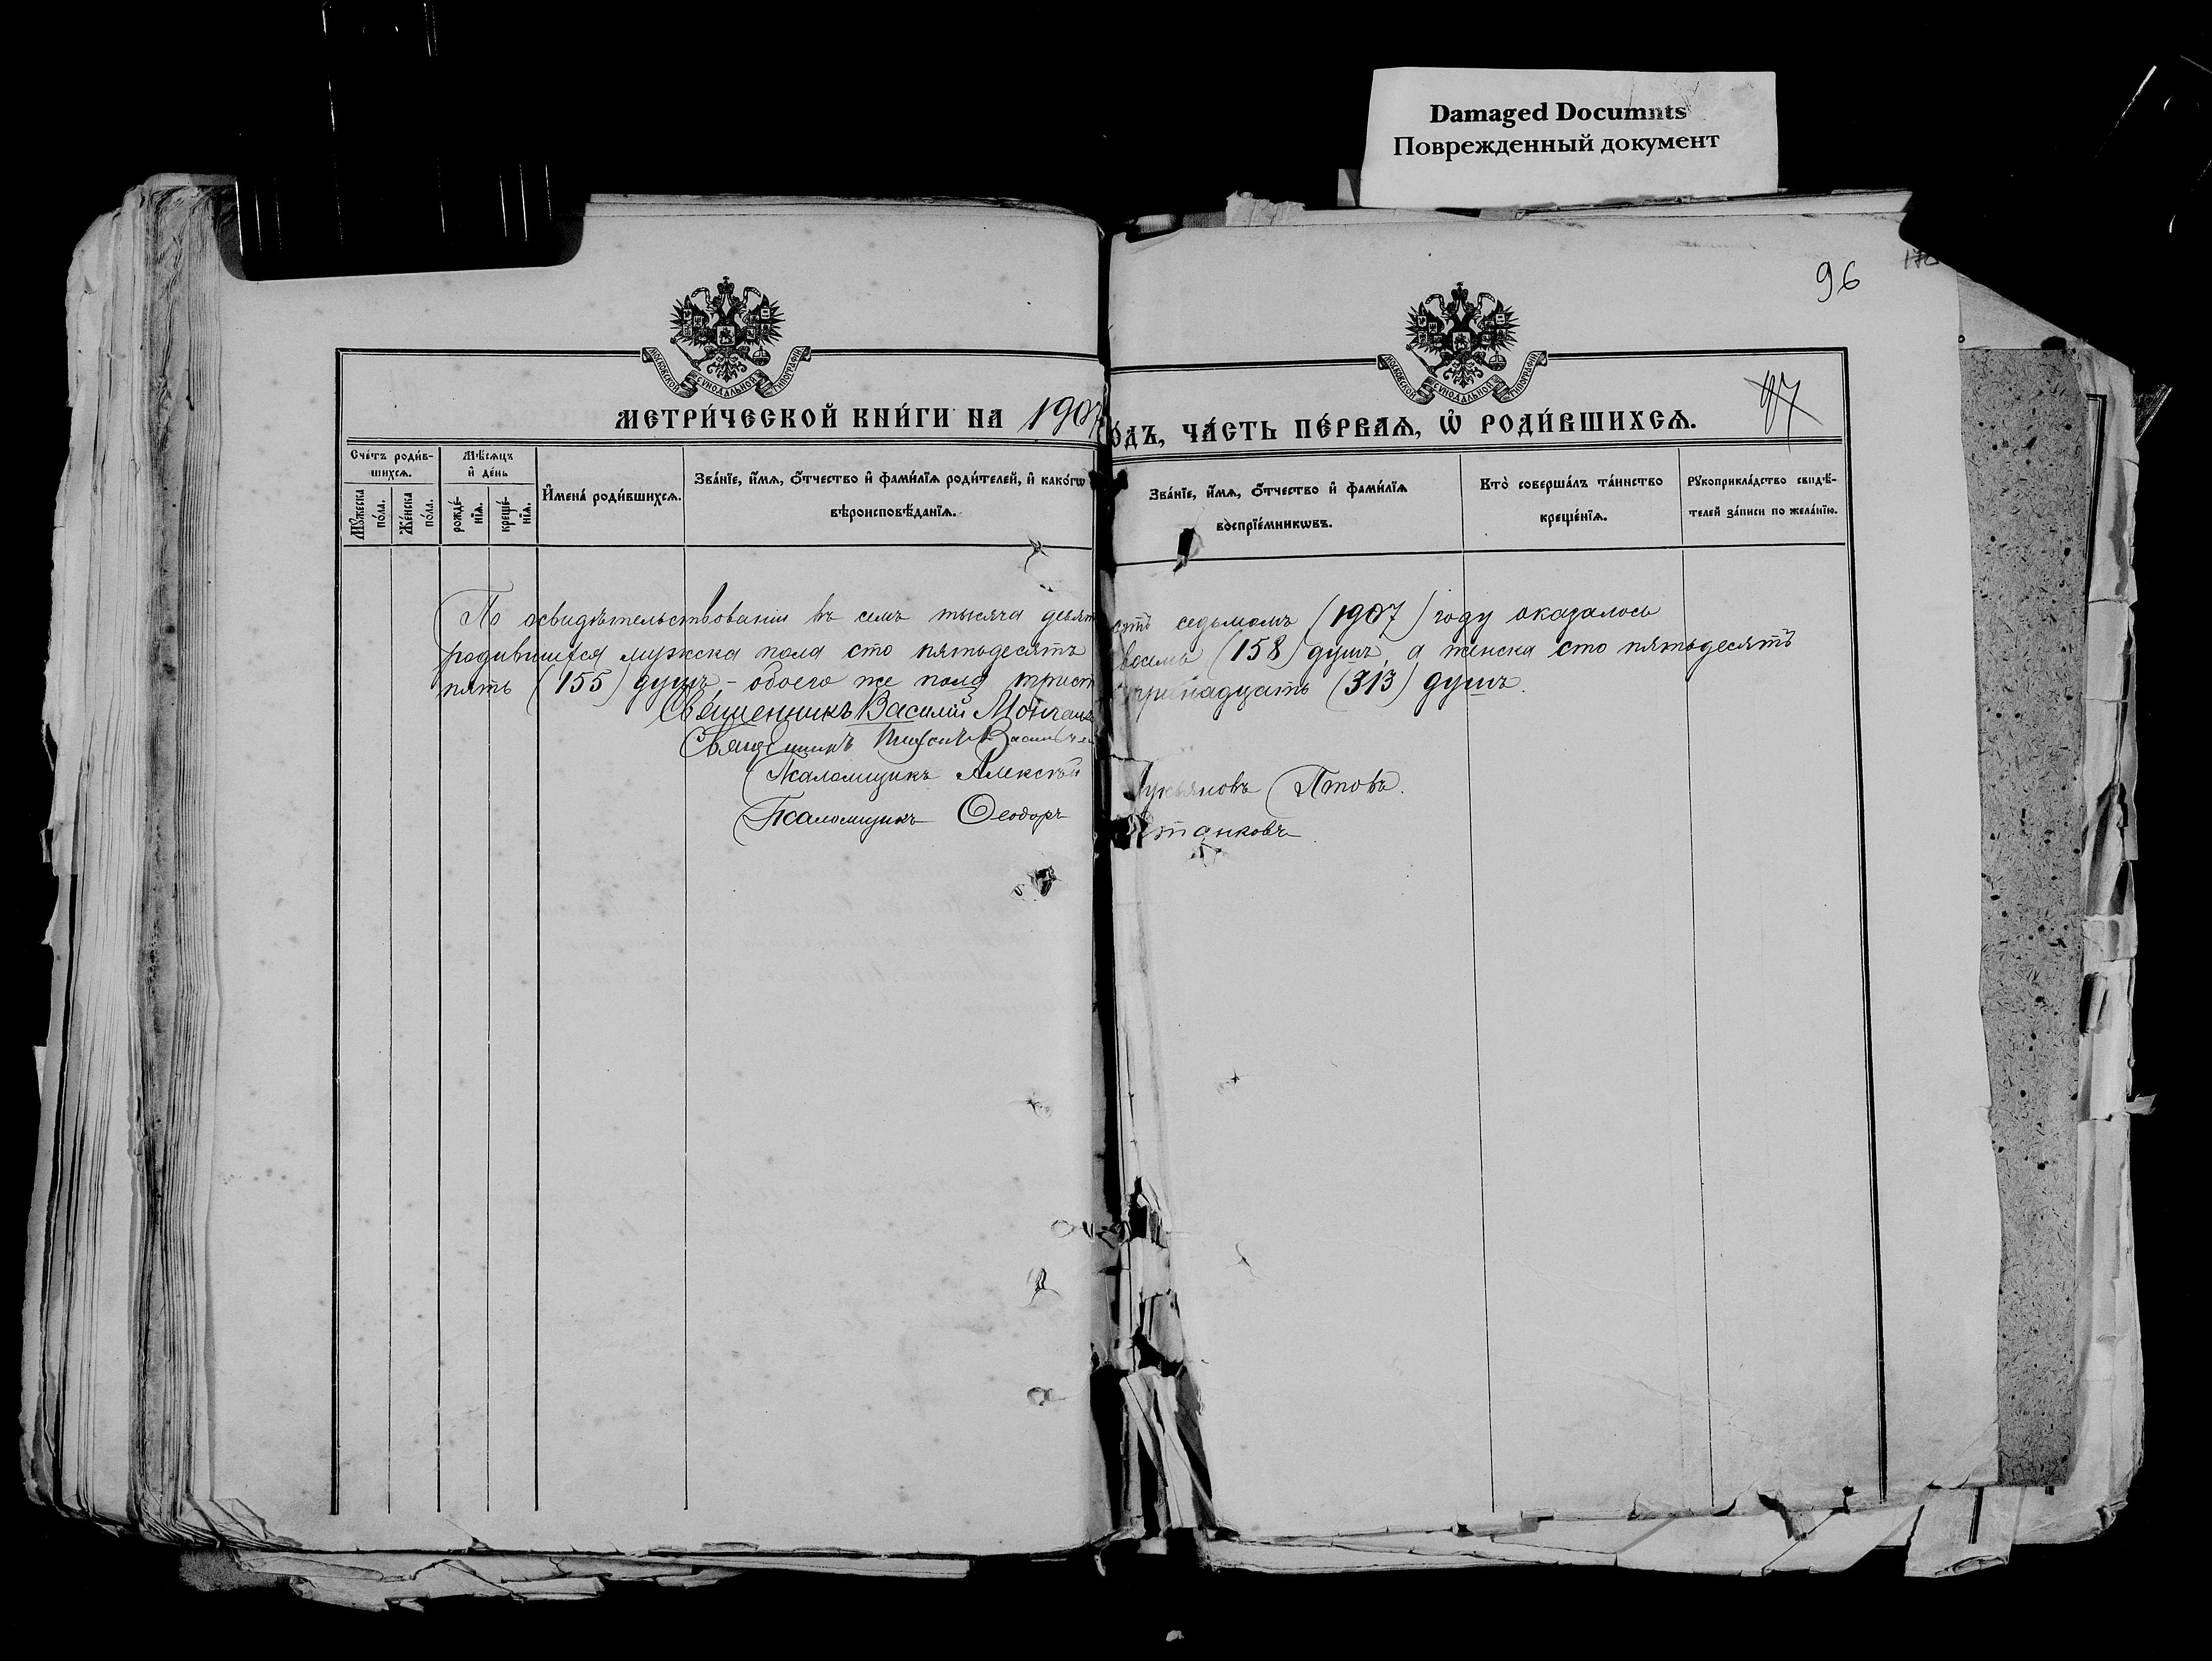 Damaged Documnts
Поврежденный документ
96
МОСКОВСКОЙ СУНОДАЛЬНОЙ ТИПОГРАФІИ
МОСКОВСКОЙ СУНОДАЛЬНОЙ ТИПОГРАФІИ
97
МЕТРИ́ЧЕСКОЙ КНИ́ГИ НА 1907
О́ДЪ, ЧА́СТЬ ПЕ́РВАѦ, Ѡ҆ РОДИ́ВШИХСѦ.
Сче́тъ роди́в-
шихсѧ.
Мꙋ́жеска по́ла.
Же́нска по́ла.
Мѣ́сѧцъ
и҆ де́нь
рожде́-
нїѧ.
креще́-
нїѧ.
И҆мена̀ роди́вшихсѧ.
Зва́нїе, и҆́мѧ, ѻ҆́тчество и҆ фами́лїѧ роди́телей, и҆ како́гѡ
вѣроисповѣ́данїѧ.
Зва́нїе, и҆́мѧ, ѻ҆́тчество и҆ фами́лїѧ
воспрїе́мникѡвъ.
Кто̀ соверша́лъ та́инство
креще́нїѧ.
Рꙋкоприкла́дство свидѣ́-
телей за́писи по жела́нїю.
По освидѣтельствованіи въ семъ тысяча девят сотъ седьмомъ (1907) году оказалось
родившихся мужска пола сто пятьдесятъ восемь (158) душъ, а женска сто пятьдесятъ
пять (155) душъ – обоего же пола трист тринадцать (313) душъ.
Священникъ Василій
Священникъ
Псаломщикъ Алексѣй Лукьяновъ Птовъ.
Псаломщикъ Ѳеодоръ Станковъ